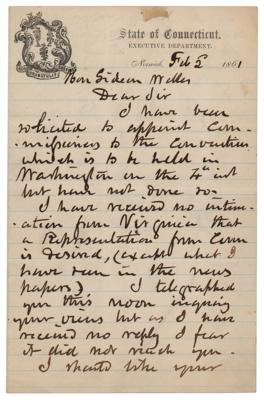 State of Connecticut.
EXECUTIVE DEPARTMENT.
Norwich, Feb 2d 1861
Hon Gideon Welles
Dear Sir
I have been
solicited to appoint Com-
missioners to the Convention
which is to be held in
Washington on the 4th inst
but have not done so.
I have received no intim-
ation from Virginia that
a Representation from Conn
is desired, (except what I
have seen in the news
papers). I telegraphed
you this noon inquiring
your views but as I have
received no reply I fear
it did not reach you.
I should like your